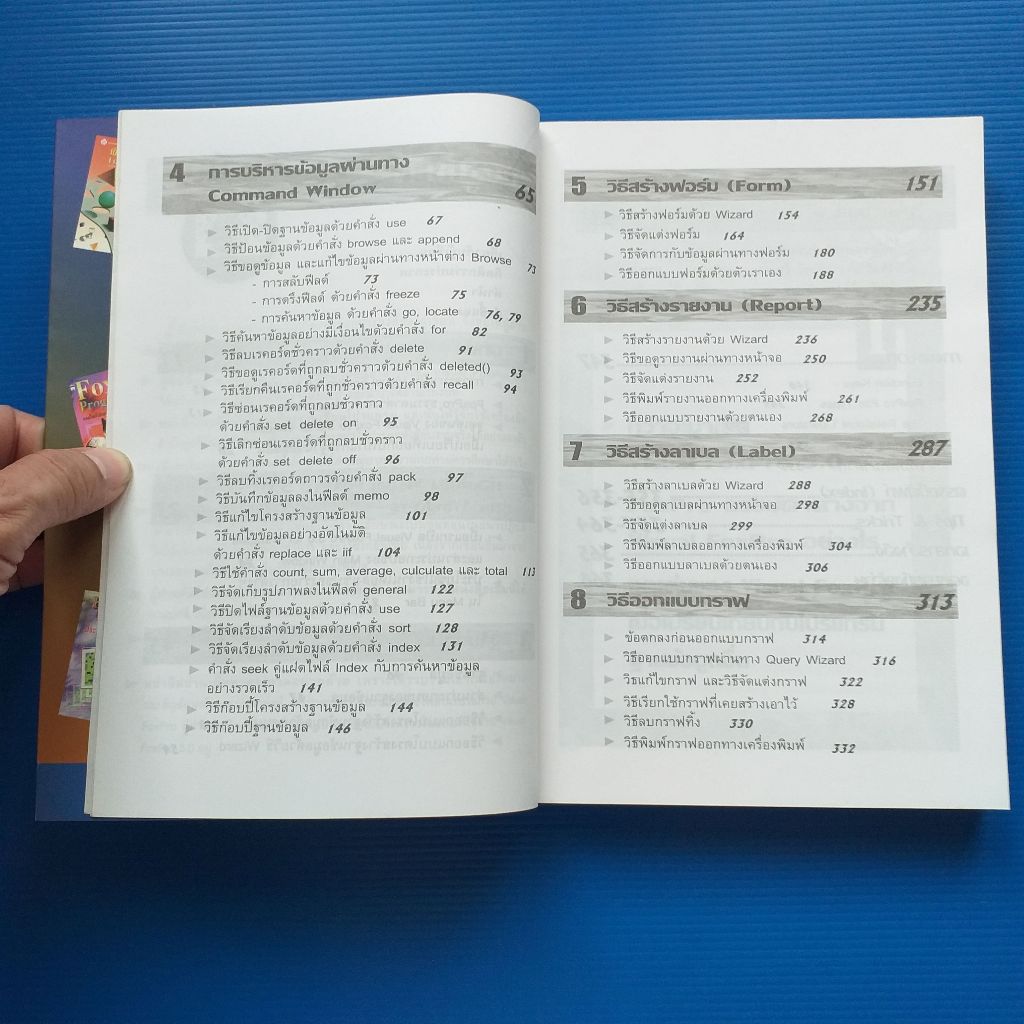 4 การบริหารข้อมูลผ่านทาง
Command Window 65
วิธีเปิด-ปิดฐานข้อมูลด้วยคำสั่ง use 67
วิธีป้อนข้อมูลด้วยคำสั่ง browse และ append 68
วิธีขอดูข้อมูล และแก้ไขข้อมูลผ่านทางหน้าต่าง Browse 73
- การสลับฟีลด์ 73
- การตรึงฟีลด์ ด้วยคำสั่ง freeze 75
- การค้นหาข้อมูล ด้วยคำสั่ง go, locate 76, 79
วิธีค้นหาข้อมูลอย่างมีเงื่อนไขด้วยคำสั่ง for 82
วิธีลบเรคอร์ดชั่วคราวด้วยคำสั่ง delete 91
วิธีขอดูเรคอร์ดที่ถูกลบชั่วคราวด้วยคำสั่ง deleted() 93
วิธีเรียกคืนเรคอร์ดที่ถูกลบชั่วคราวด้วยคำสั่ง recall 94
วิธีซ่อนเรคอร์ดที่ถูกลบชั่วคราว
ด้วยคำสั่ง set delete on 95
วิธีเลิกซ่อนเรคอร์ดที่ถูกลบชั่วคราว
ด้วยคำสั่ง set delete off 96
วิธีลบทิ้งเรคอร์ดถาวรด้วยคำสั่ง pack 97
วิธีบันทึกข้อมูลลงในฟีลด์ memo 98
วิธีแก้ไขโครงสร้างฐานข้อมูล 101
วิธีแก้ไขข้อมูลอย่างอัตโนมัติ
ด้วยคำสั่ง replace และ iif 104
วิธีใช้คำสั่ง count, sum, average, culculate และ total 113
วิธีจัดเก็บรูปภาพลงในฟีลด์ general 122
วิธีปิดไฟล์ฐานข้อมูลด้วยคำสั่ง use 127
วิธีจัดเรียงลำดับข้อมูลด้วยคำสั่ง sort 128
วิธีจัดเรียงลำดับข้อมูลด้วยคำสั่ง index 131
คำสั่ง seek คู่แฝดไฟล์ Index กับการค้นหาข้อมูล
อย่างรวดเร็ว 141
วิธีก๊อบปี้โครงสร้างฐานข้อมูล 144
วิธีก๊อบปี้ฐานข้อมูล 146
5 วิธีสร้างฟอร์ม (Form) 151
วิธีสร้างฟอร์มด้วย Wizard 154
วิธีจัดแต่งฟอร์ม 164
วิธีจัดการกับข้อมูลผ่านทางฟอร์ม 180
วิธีออกแบบฟอร์มด้วยตัวเราเอง 188
6 วิธีสร้างรายงาน (Report) 235
วิธีสร้างรายงานด้วย Wizard 236
วิธีขอดูรายงานผ่านทางหน้าจอ 250
วิธีจัดแต่งรายงาน 252
วิธีพิมพ์รายงานออกทางเครื่องพิมพ์ 261
วิธีออกแบบรายงานด้วยตนเอง 268
7 วิธีสร้างลาเบล (Label) 287
วิธีสร้างลาเบลด้วย Wizard 288
วิธีขอดูลาเบลผ่านทางหน้าจอ 298
วิธีจัดแต่งลาเบล 299
วิธีพิมพ์ลาเบลออกทางเครื่องพิมพ์ 304
วิธีออกแบบลาเบลด้วยตนเอง 306
8 วิธีออกแบบกราฟ 313
ข้อตกลงก่อนออกแบบกราฟ 314
วิธีออกแบบกราฟผ่านทาง Query Wizard 316
วิธีแก้ไขกราฟ และวิธีจัดแต่งกราฟ 322
วิธีเรียกใช้กราฟที่เคยสร้างเอาไว้ 328
วิธีลบกราฟทิ้ง 330
วิธีพิมพ์กราฟออกทางเครื่องพิมพ์ 332